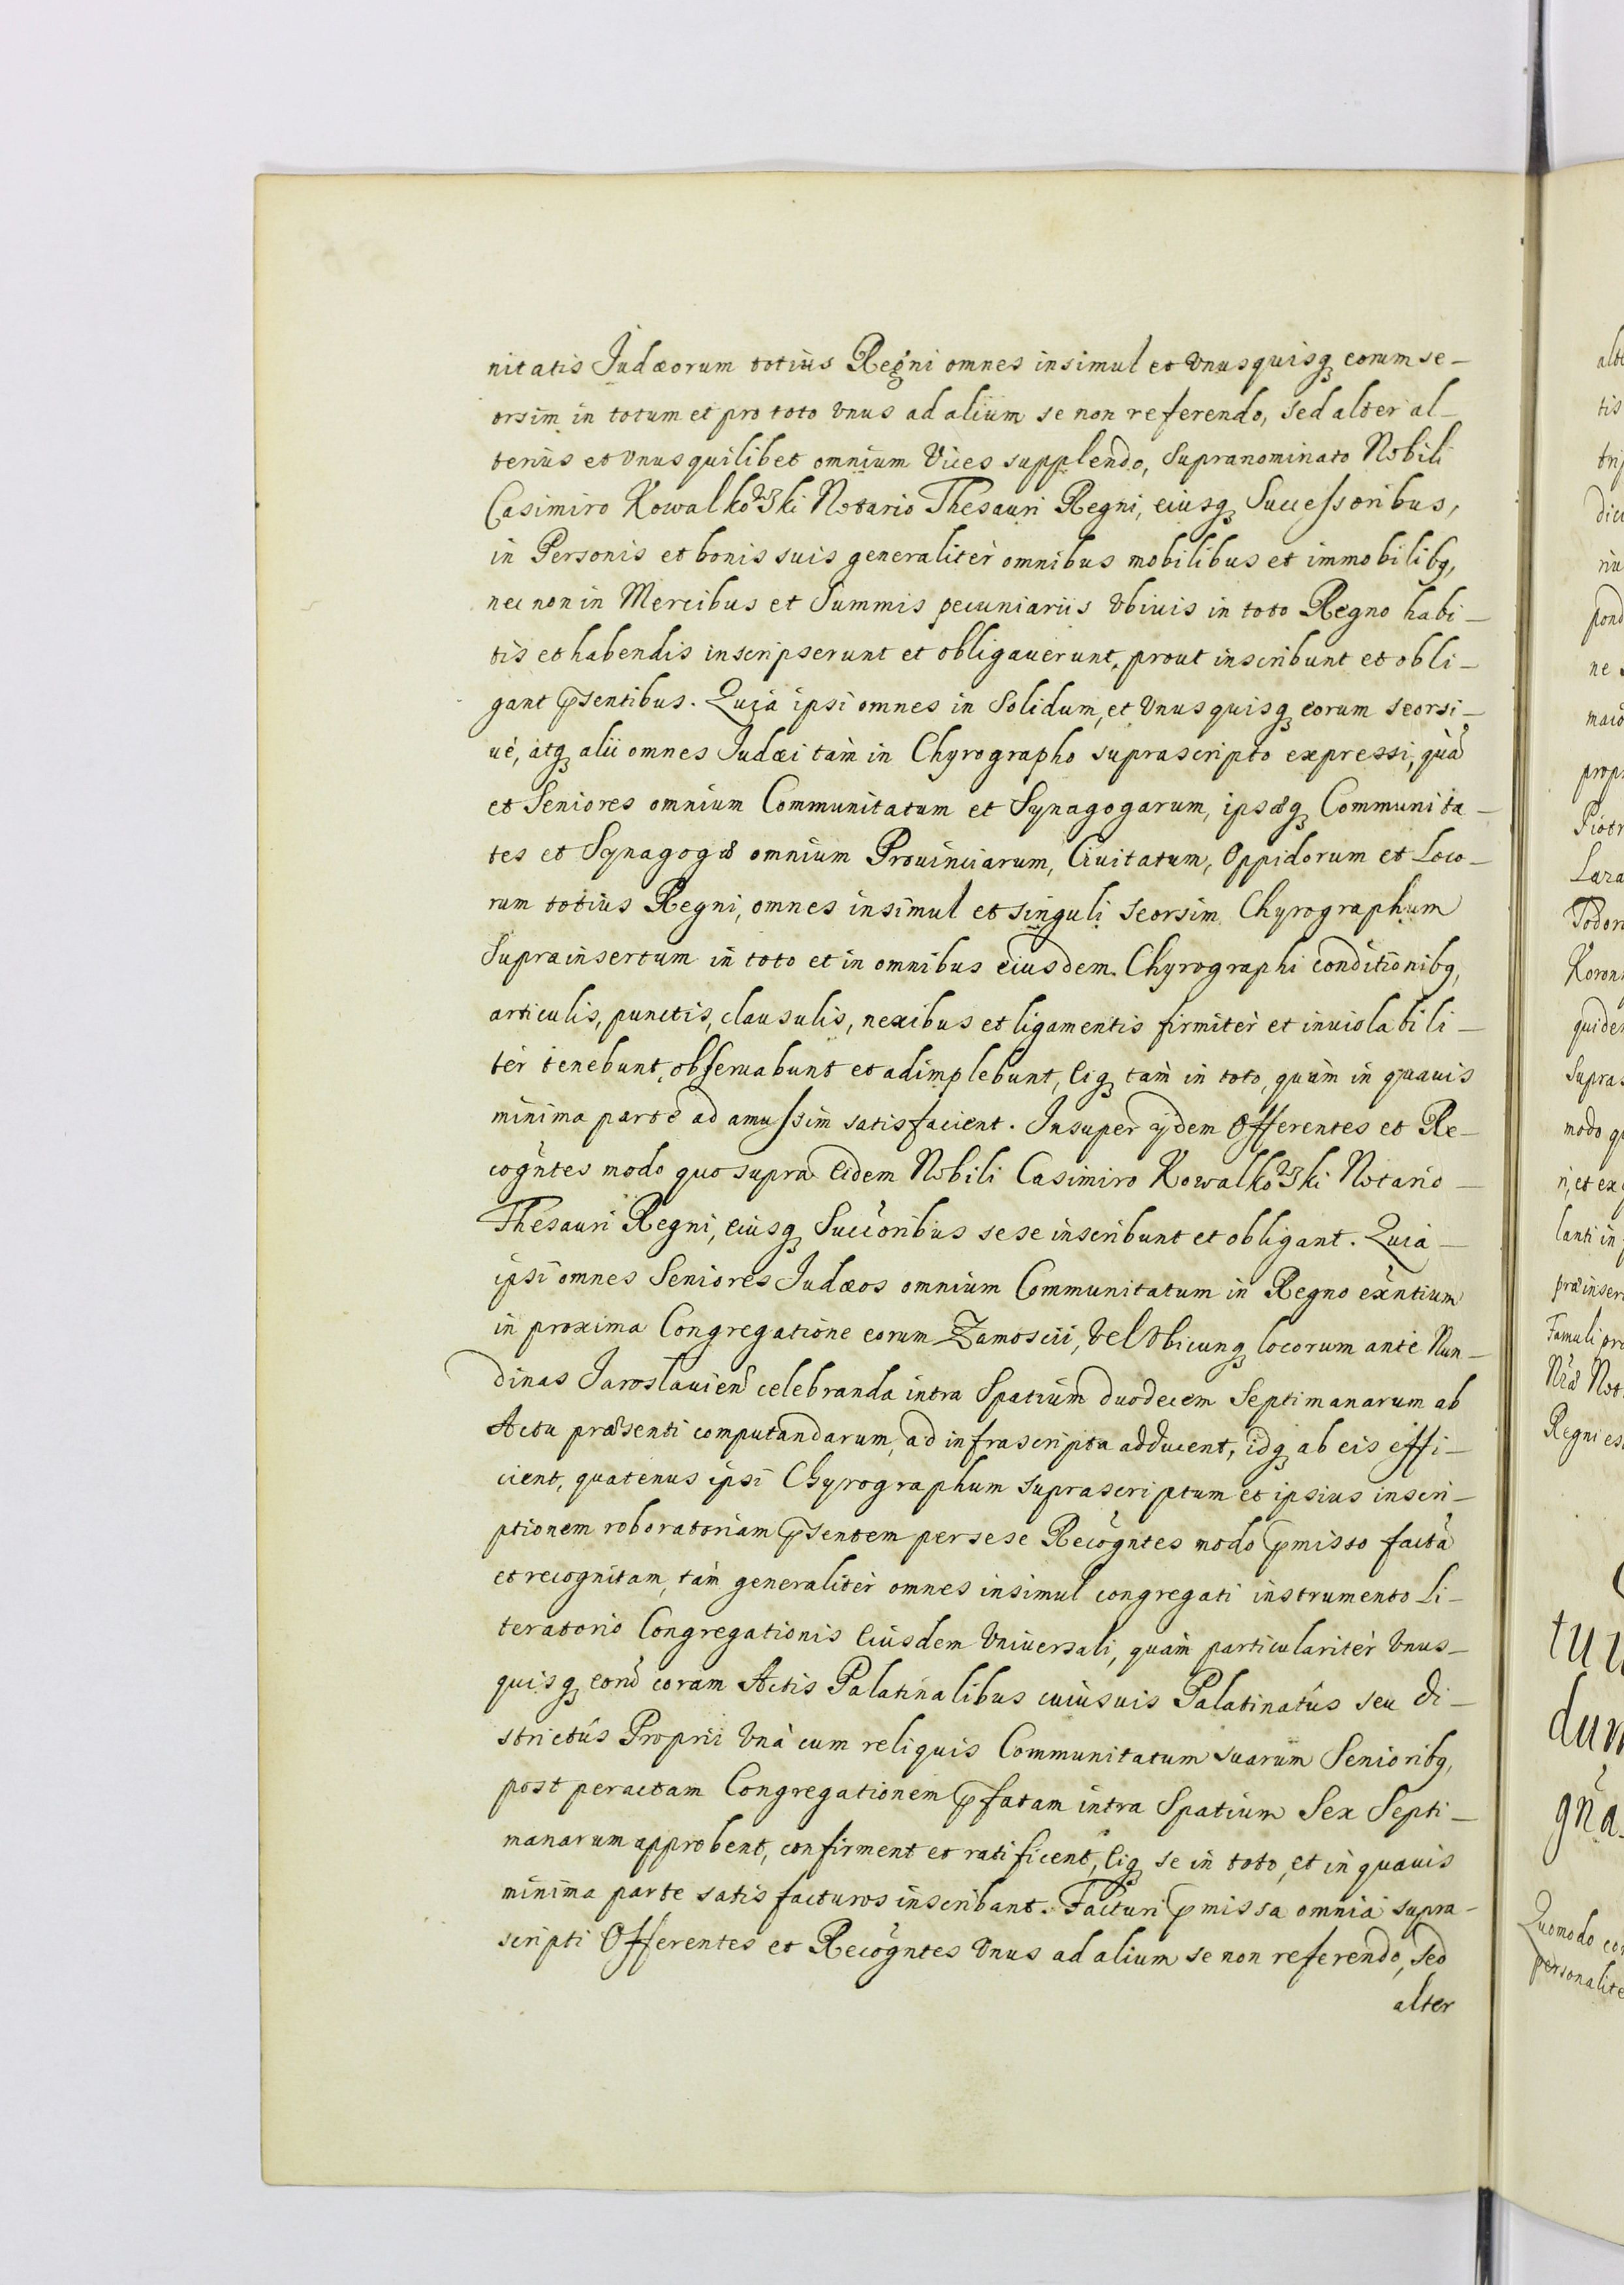 nitatis Judæorum totius Regni omnes insimul et Vnusquisq́ eorum se-
orsim in totum et pro toto Vnus ad alium se non referendo, sed alter al-
terius et Vnusquilibet omnium Vices supplendo, Supranominato Nobili
Casimiro Kowalkowski Notario Thesauri Regni, eiusq́ Successoribus,
in Personis et bonis suis generalitèr omnibus mobilibus et immobilibq,
nec non in Mercibus et Summis pecuniariis Vbiuis in toto Regno habi-
tis et habendis inscripserunt et obligauerunt, prout inscribunt et obli-
gant p̄sentibus. Quia ipsi omnes in Solidum, et Vnusquisq́ eorum seorsi-
uè, atq́ alii omnes Judæi tàm in Chyrographo suprascripto expressi, quā
et Seniores omnium Communitatum et Synagogarum, ipsæq́ Communita-
tes et Synagogæ omnium Prouinciarum, Ciuitatum, Oppidorum et Loco-
rum totius Regni, omnes insimul et singuli seorsim Chyrographum
Suprainsertum in toto et in omnibus eiusdem Chyrographi conditionibq,
articulis, punctis, clausulis, nexibus et ligamentis firmitèr et inuiolabili-
tèr tenebunt, obseruabunt et adimplebunt, Eiq́ tàm in toto, quàm in quauis
minima parte ad amussim satisfacient. Insuper ijdem Offerentes et Re-
cogn̄tes modo quo supra Eidem Nobili Casimiro Kowalkowski Notario-
Thesauri Regni, eiusq́ Succ̄oribus sese inscribunt et obligant. Quia-
ipsi omnes Seniores Judæos omnium Communitatum in Regno ex̄ntium
in proxima Congregatione eorum Zamoscii, Vel Vbicunq́ locorum ante Nun-
dinas Jaroslauien̄ celebranda intra Spatium duodecem Septimanarum ab
Actu præsenti computandarum, ad infrascripta adducent, idq́ ab eis effi-
cient, quatenus ipsi Chyrographum suprascriptum et ipsius inscri-
ptionem roboratoriam p̄sentem per sese Recogn̄tes modo p̄misso factā
et recognitam, tàm generalitèr omnes insimul congregati instrumento Li-
teratorio Congregationis Eiusdem Vniuersali, quàm particularitèr Vnus-
quisq́ eorū coram Actis Palatinalibus cuiusuis Palatinatûs seu Di-
strictûs Proprii Vnà cum reliquis Communitatum suarum Senioribq,
post peractam Congregationem p̄fatam intra Spatium Sex Septi-
manarum approbent, confirment et ratificent, Eiq́ se in toto, et in quauis
minima parte satisfacturos inscribant. Facturi p̄missa omnia supra-
scripti Offerentes et Recogn̄tes Vnus ad alium se non referendo, sed
alter